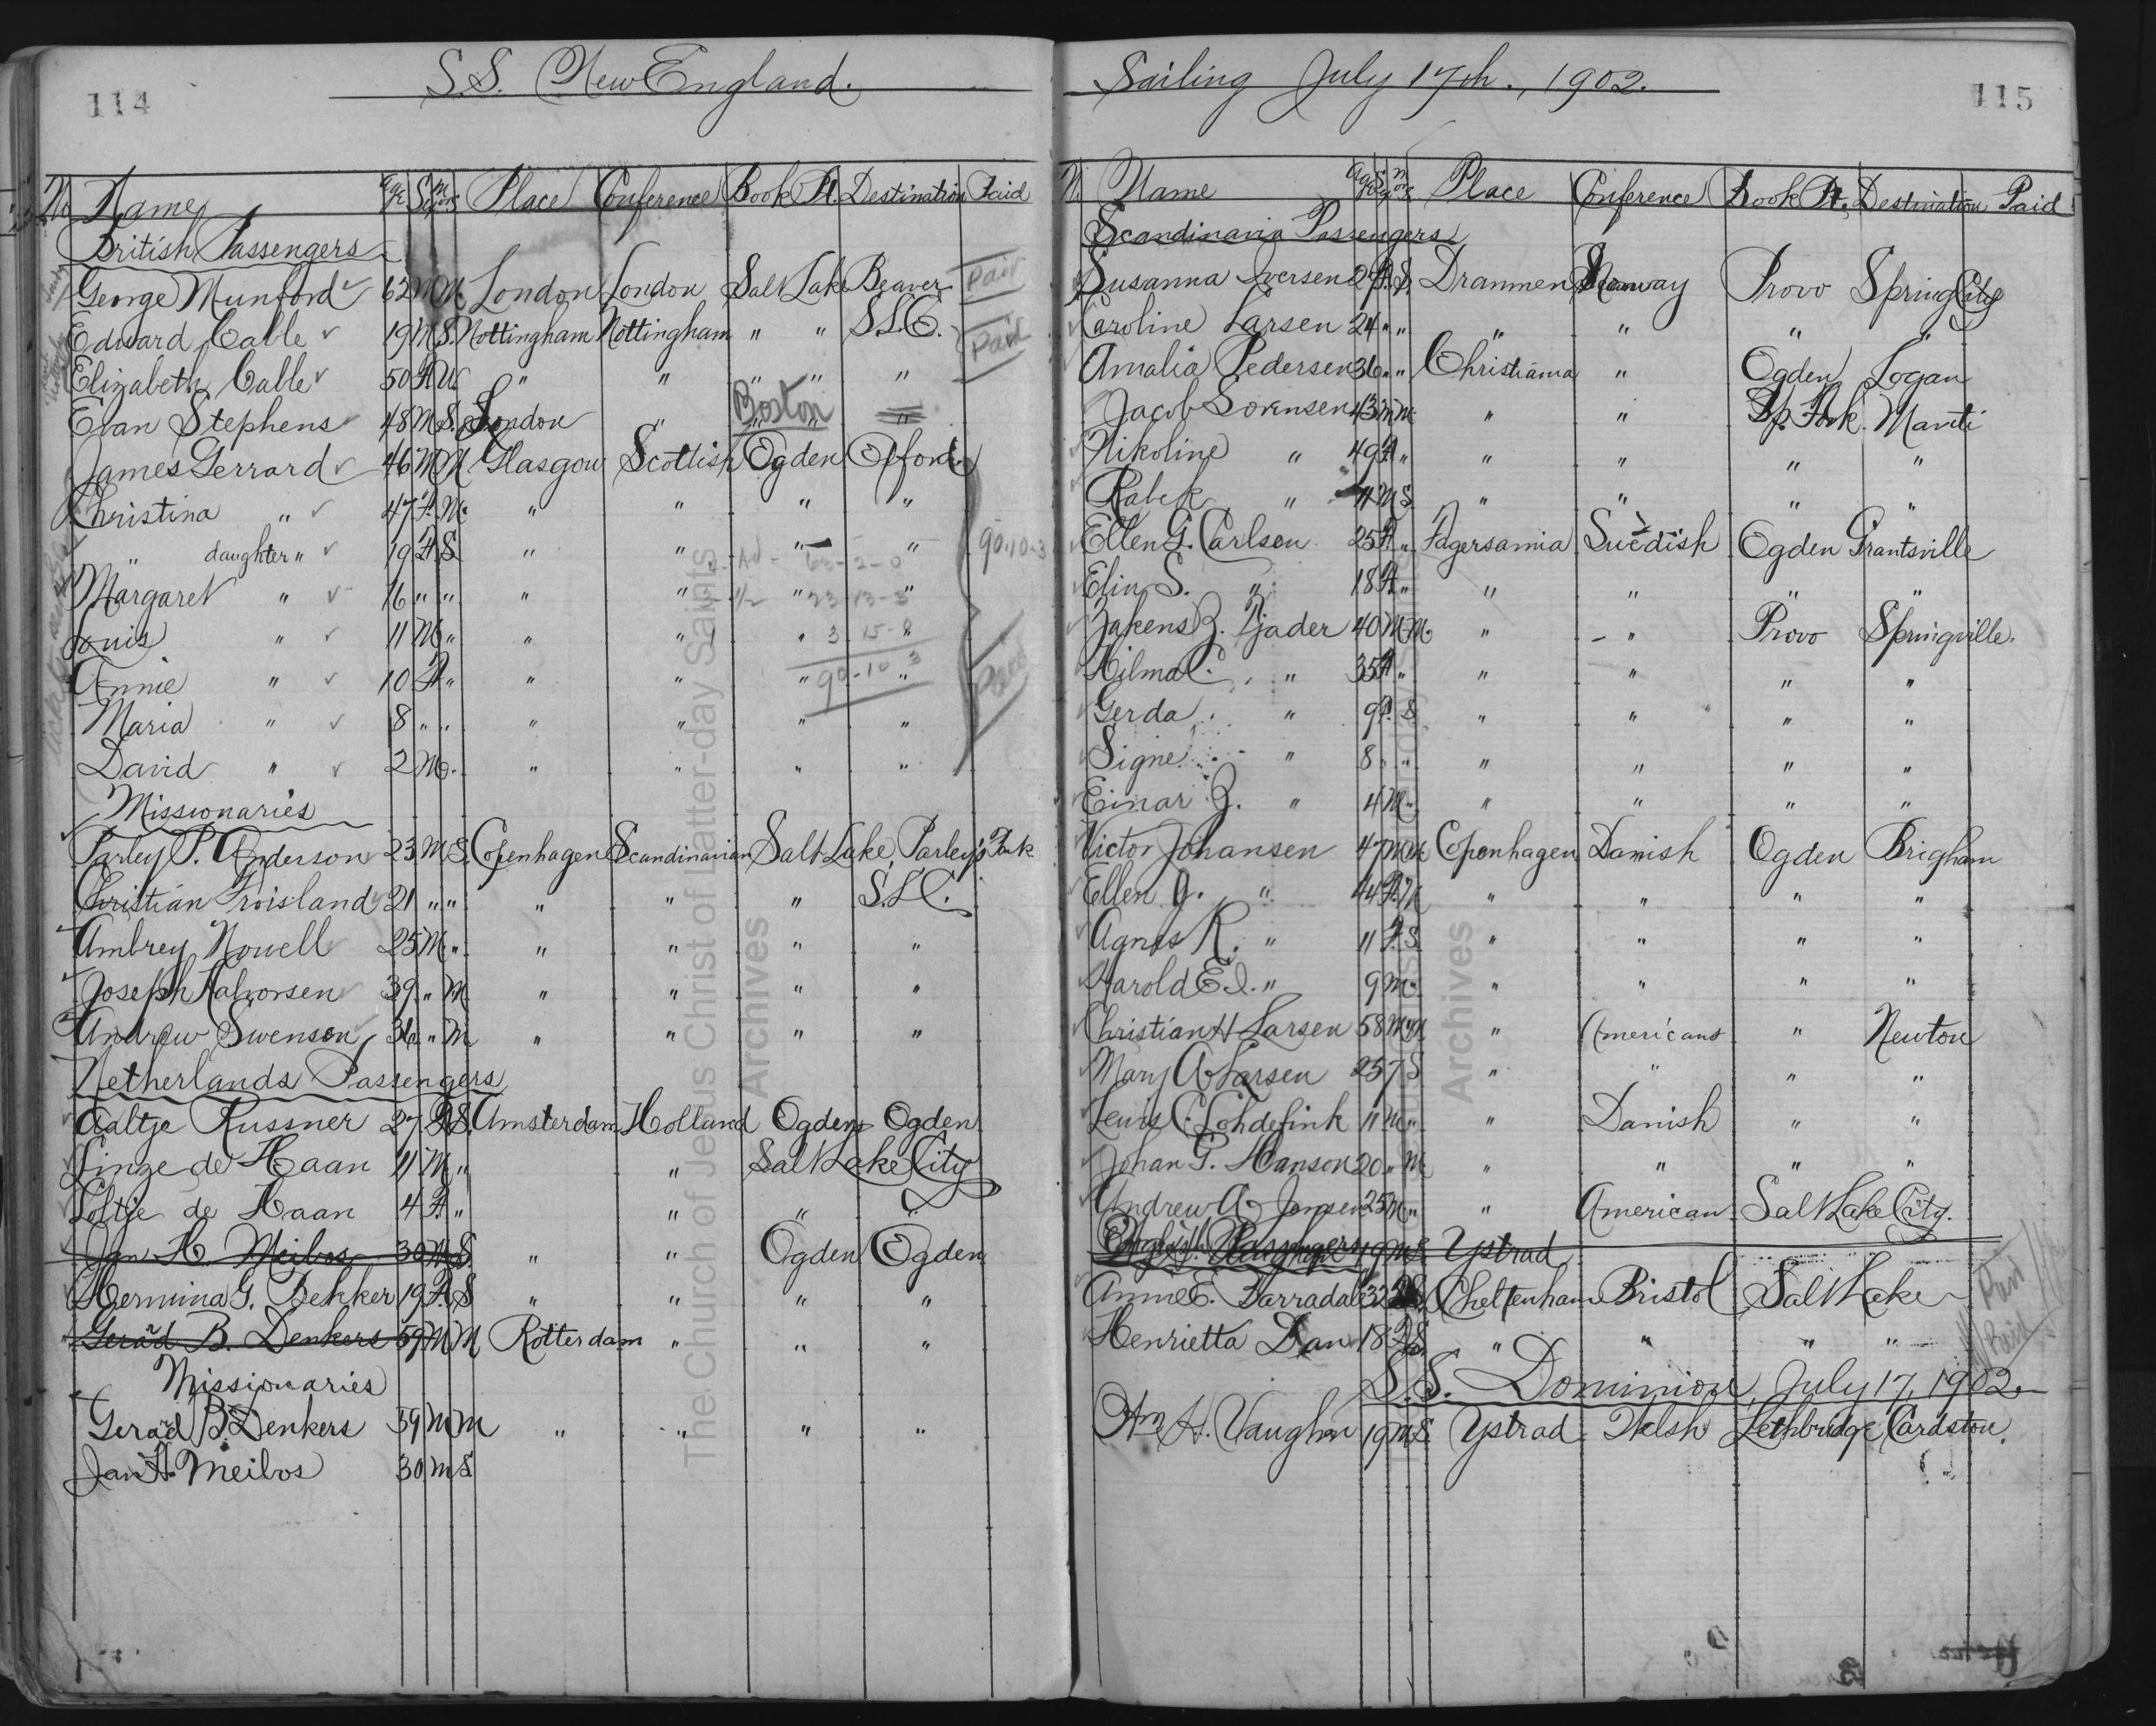 114
S.S. New England.
No Name Age Sex M or S Place Conference Book Pt. Destination Paid
British Passengers
George Munford 62 M M London London Salt Lake Beaver Paid
Edward Cable 19 M S. Nottingham Nottingham " " S.L.C. Paid
Elizabeth Cable 50 F W " " " " "
Evan Stephens 48 M S. London " Boston "
James Gerrard 46 M M Glasgow Scottish Ogden Oxford
Christina " 47 F. M. " " " "
" daughter " 19 F S " " " " 90-10-3
Margaret " 16 " " " " " "
Louis " 11 M " " " " "
3 15-8
Annie " 10 F " " " " "
90-10 3 Paid
Maria " 8 " " " " " "
David " 2 M " " " " "
Missionaries
Parley P. Anderson 23 M S. Copenhagen Scandinavian Salt Lake Parley's Park
Christian Froisland 21 " " " " " S.L.C.
Ambrey Nowell 25 M " " " " "
Joseph Halvorsen 39 " M " " " "
Andrew Swenson 36 " M " " " "
Netherlands Passengers
Aaltje Russner 27 F S. Amsterdam Holland Ogden Ogden
Singe de Haan 11 M " " Salt Lake City
Loltje de Haan 4 F. " " " "
Jan H. Meibos 30 M S " " Ogden Ogden
Hermina G. Bekker 19 F. S " " " "
Gerard B. Denkers 59 M M Rotterdam " " "
Missionaries
Gerard B. Denkers 59 M M " " " "
Jan H. Meibos 30 M S
115
Sailing July 17th., 1902.
N. Name Age Sex M or S Place Conference Book Pt. Destination Paid
Scandinavia Passengers
Susanna Iversen 27 F. S. Drammen Norway Provo Spring City
Caroline Larsen 24 " " " " " "
Amalia Pedersen 36 " " Christiania " Ogden Logan
Jacob Sorensen 43 M M " " Sp. Fork. Manti
Nikoline " 49 F " " " " "
Rabek " 11 M S " " " "
Ellen G. Carlsen 25 F. " Fagersamia Swedish Ogden Grantsville
Elin S. " 18 F. " " " " "
Zakens Z. Tjader 40 M M " " Provo Springville.
Hilma C. " 35 F " " " " "
Gerda " 9 F. S " " " "
Signe " 8 " " " " " "
Einar Z. " 4 M " " " " "
Victor Johansen 47 M M Copenhagen Danish Ogden Brigham
Ellen J. " 44 F. M " " " "
Agnes R. " 11 F. S " " " "
Harold Ed. " 9 M " " " " "
Christian H Larsen 58 M M " Americans " Newton
Mary A Larsen 25 F S " " " "
Lewis C. Lohdefink 11 M " " Danish " "
Johan G. Hanson 20 " M " " " "
Andrew A Jensen 25 M " " American Salt Lake City.
English Passengers 19 M S Ystrad
Annie E. Barradale 32 S. Cheltenham Bristol Salt Lake Paid
Henrietta Dan 18 F S. " " " " Paid
S.S. Dominion, July 17, 1902.
Wm H. Vaughn 19 M S. Ystrad Welsh Lethbridge Cardston.
The Church of Jesus Christ of Latter-day Saints
Archives
Archives